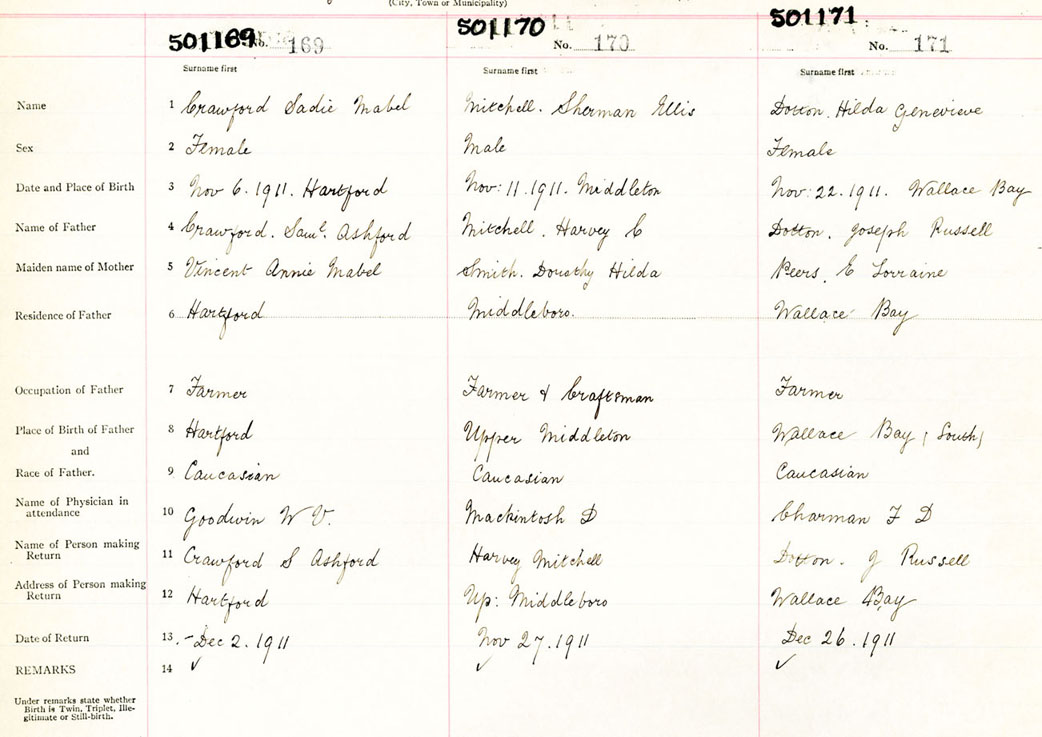 (City, Town or Municipality)
501169 No. 169 501170 No. 170 501171 No. 171
Surname first Surname first Surname first
Name 1 Crawford Sadie Mabel Mitchell. Sherman Ellis Dotton. Hilda Genevieve
Sex 2 Female Male Female
Date and Place of Birth 3 Nov 6. 1911. Hartford Nov: 11. 1911. Middleton Nov: 22. 1911. Wallace Bay
Name of Father 4 Crawford. Saml. Ashford Mitchell. Harvey C Dotton. Joseph Russell
Maiden name of Mother 5 Vincent Annie Mabel Smith. Dorothy Hilda Peers. E Lorraine
Residence of Father 6 Hartford Middleboro. Wallace Bay
Occupation of Father 7 Farmer Farmer & Craftsman Farmer
Place of Birth of Father 8 Hartford Upper Middleton Wallace Bay (South)
and
Race of Father. 9 Caucasian Caucasian Caucasian
Name of Physician in attendance 10 Goodwin W V. Mackintosh D Charman F D
Name of Person making Return 11 Crawford S Ashford Harvey Mitchell Dotton. J Russell
Address of Person making Return 12 Hartford Up: Middleboro Wallace Bay
Date of Return 13. - Dec 2. 1911 Nov 27. 1911 Dec 26. 1911
REMARKS 14 ✓ ✓ ✓
Under remarks state whether
Birth is Twin, Triplet, Ille-
gitimate or Still-birth.